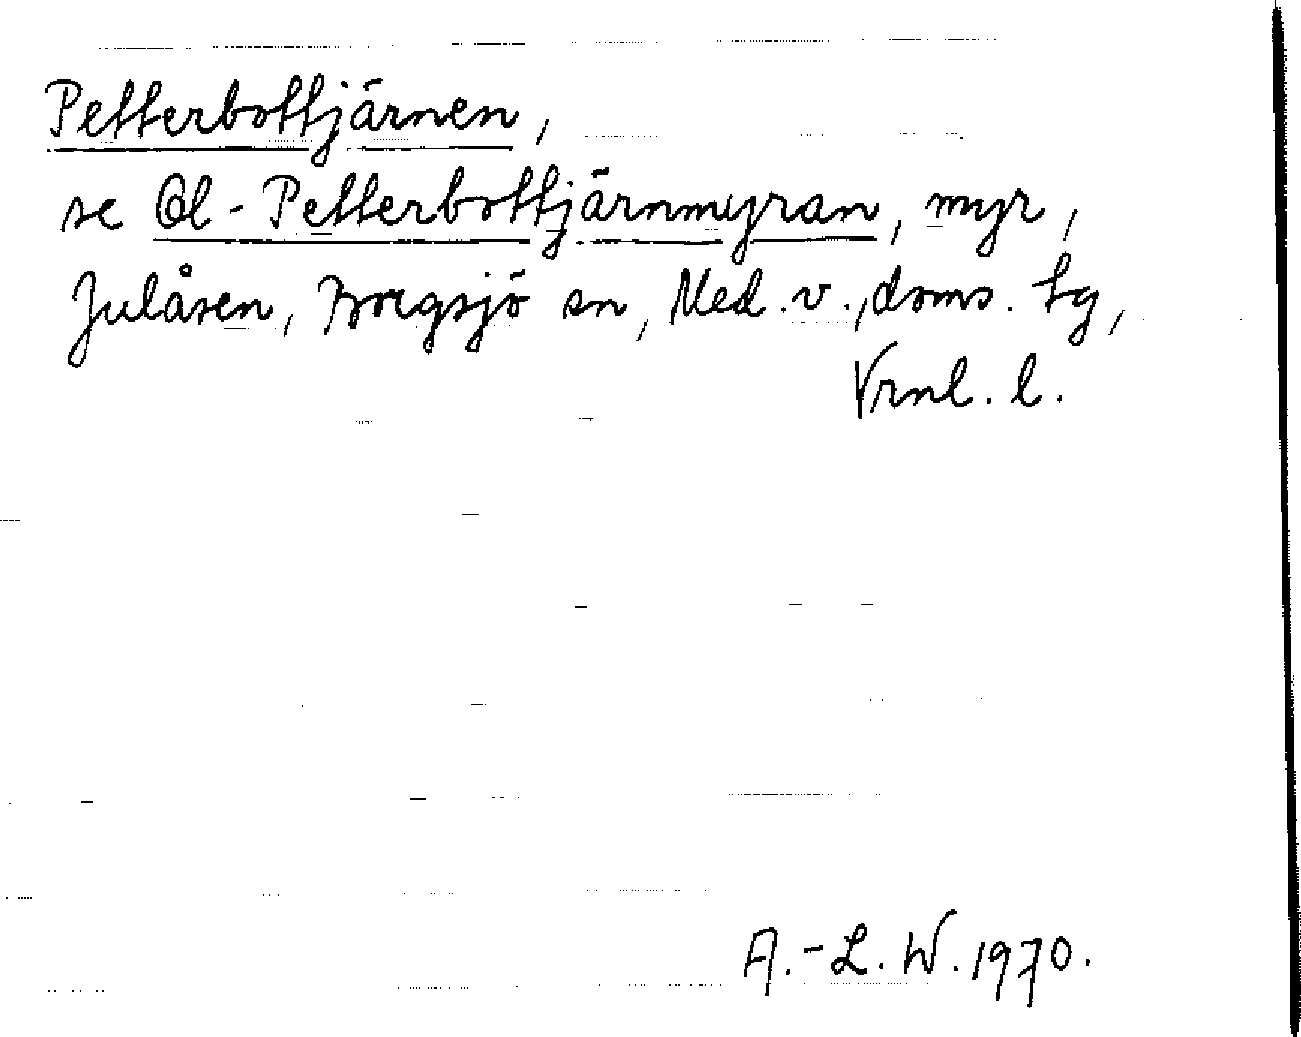 Petterbottjärnen,
se Ol-Petterbottjärnmyran, myr,
Julåsen, Borgsjö sn, Med. v., doms. hg,
Vrnl. l.
A.-L. W. 1970.